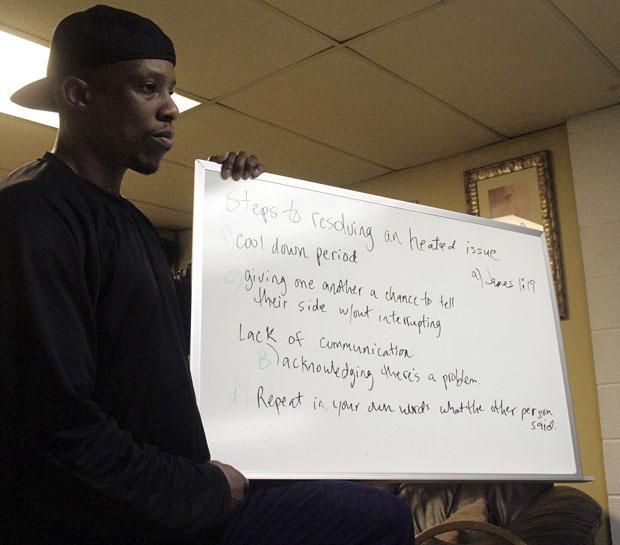 Steps to resolving an heated issue
cool down period
a) James 1:19
c) giving one another a chance to tell
their side w/out interrupting
Lack of communication
B) acknowledging there's a problem.
d) Repeat in your own words what the other person
said.